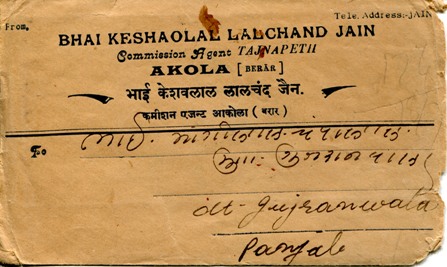 From,
Tele. Address:-JAIN
BHAI KESHAOLAL LALCHAND JAIN
Commission Agent TAJNAPETH
AKOLA [BERÄR]
भाई केशवलाल लालचंद जैन.
कमीशन एजन्ट आकोला ( बरार )
To
dt- Gujranwala
Panjab